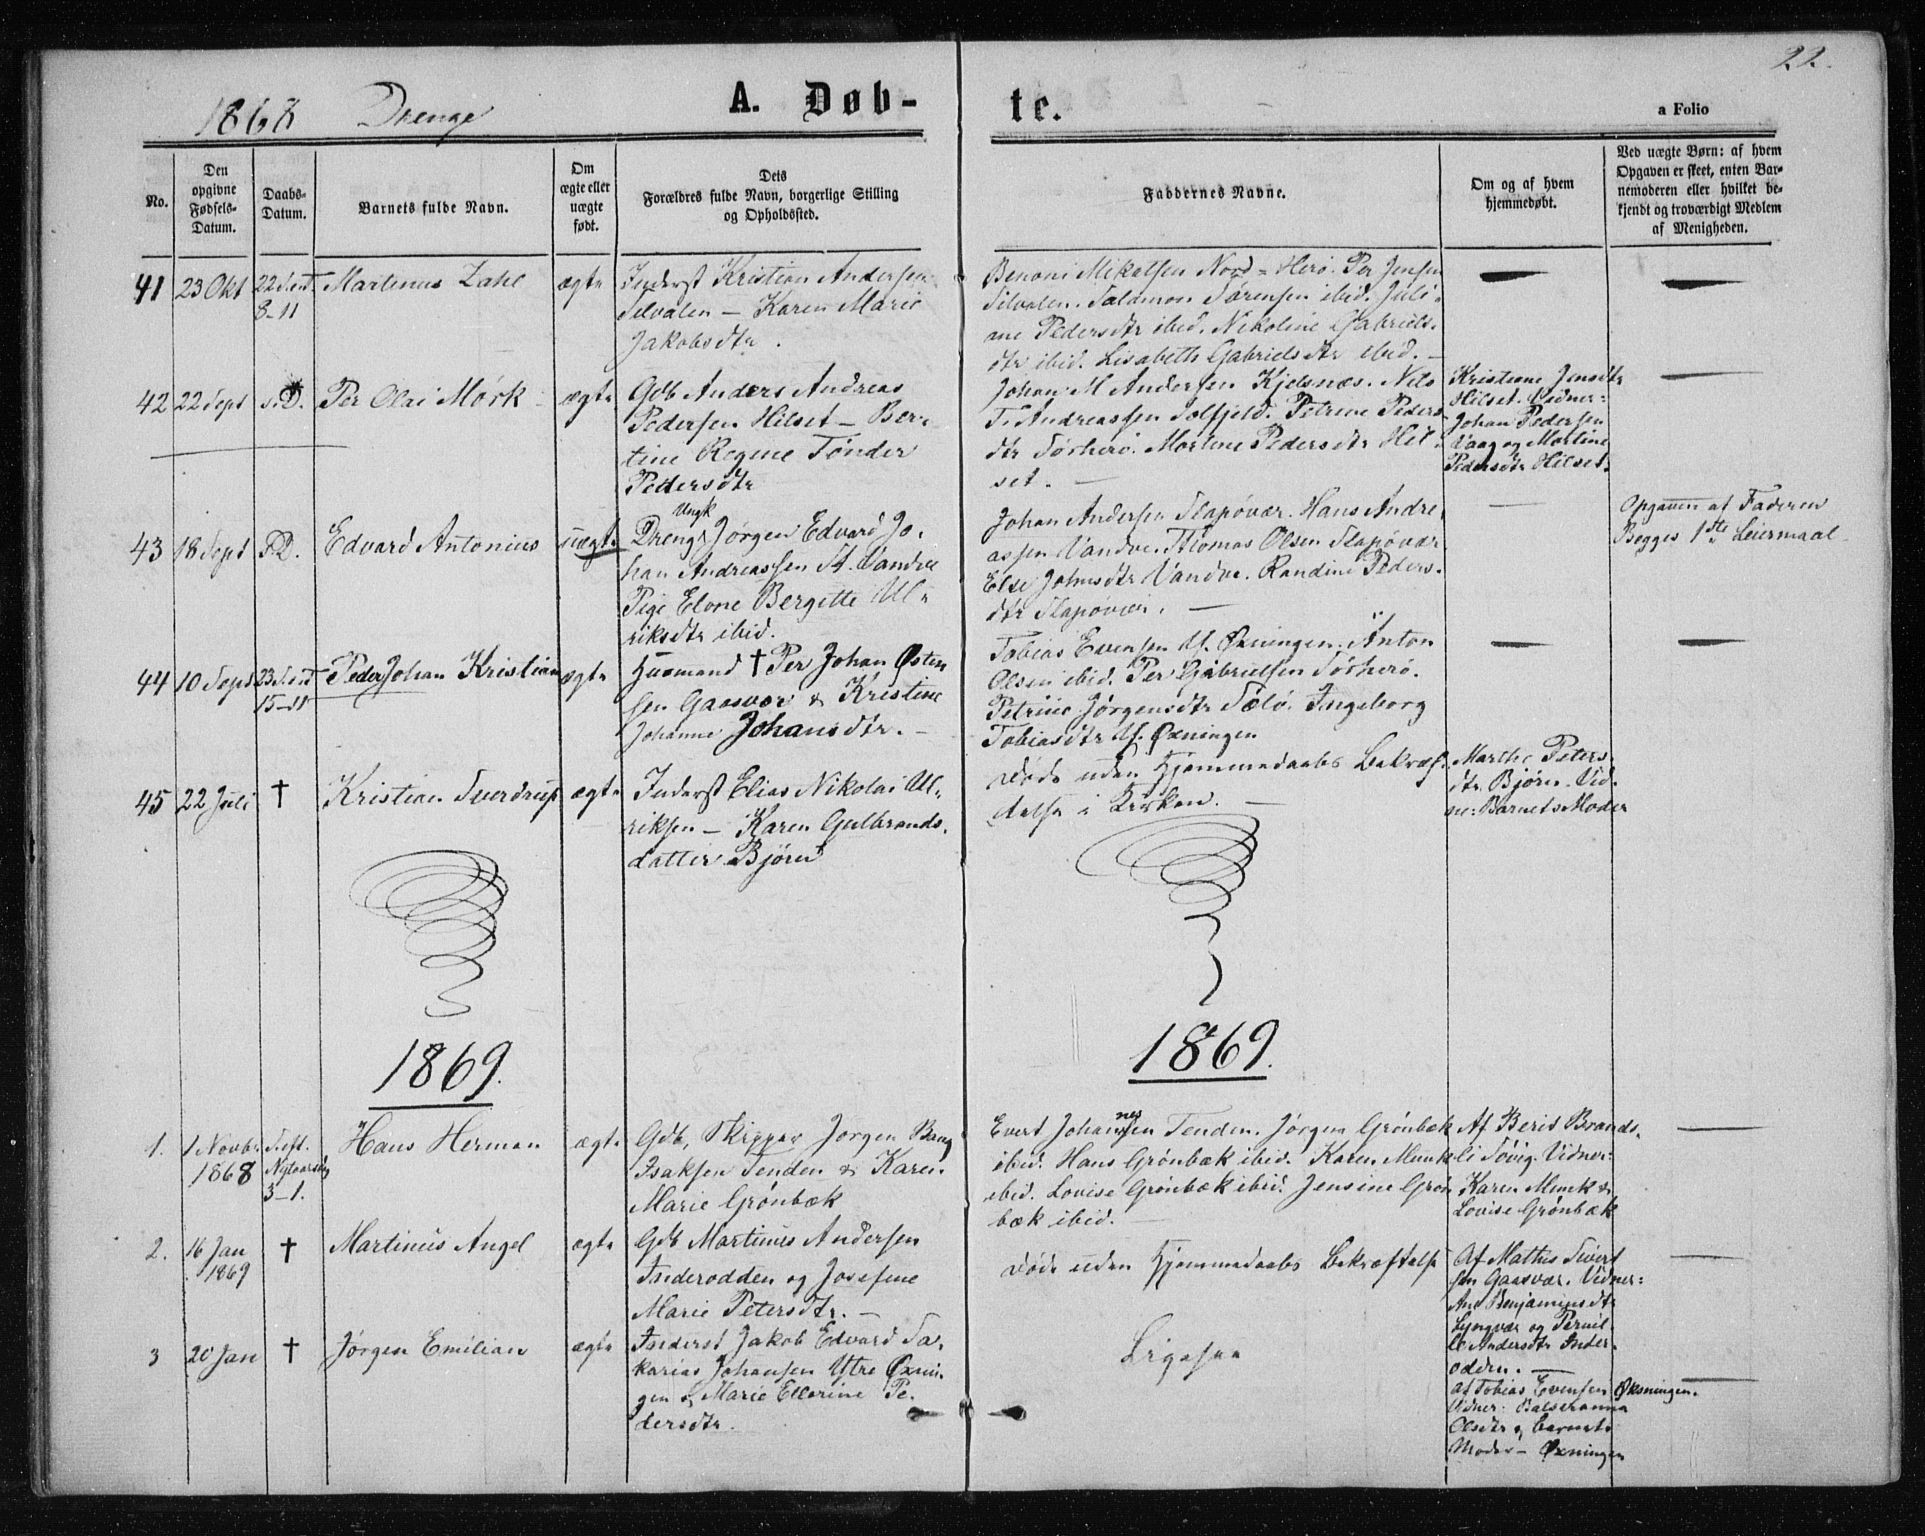 22.
1868 Drenge A. Døb-te.
a Folio
No.
Den opgivne Fødsels-Datum.
Daabs-Datum.
Barnets fulde Navn.
Om ægte eller uægte født.
Dets Forældres fulde Navn, borgerlige Stilling og Opholdssted.
Faddernes Navne.
Om og af hvem hjemmedøbt.
Ved uægte Børn: af hvem Opgaven er skeet, enten Barnemoderen eller hvilket bekjendt og troværdigt Medlem af Menigheden.
41 23 Okt 22 S.e.T. 8-11 Martinus Zahl ægte
Inderst Kristian Andersen
Silvalen — Karen Marie
Jakobsdtr.
Benoni Mikalsen Nord=Herø. Per Jensen
Silvalen. Salamon Sørensen ibid. Juli-
ane Pedersdtr ibid. Nikoline Gabriels-
dtr ibid. Lisabeth Gabrielsdtr ibid. —
42 22 Sept s.D. Per Olai Mørk ægte
Gdb Anders Andreas
Pedersen Hilset — Ber-
tine Regine Tønder
Pedersdtr
Johan M Andersen Kjelsnæs. Nils
T. Andreassen Solfjeld. Petrine Peders-
dtr Sørherø. Martine Pedersdtr Hil-
set. —
Kristine Jensdtr
Hilset. Vidner:
Johan Pedersen
Vaag og Martine
Pedersdtr Hilset.
43 18 Sept S.D. Edvard Antonius uægte
Ungk
Dreng Jørgen Edvard Jo-
han Andreassen St. Vandve
Pige Elone Bergitte Ul-
riksdtr ibid.
Johan Andersen Slapøvær. Hans Andre-
assen Vandve. Thomas Olsen Slapøvær
Else Johnsdtr Vandve. Randine Peders-
dtr Slapøvær. —
Opgaven af Faderen
Begges 1ste Leiermaal
44 10 Sept 23 S.e.T. 15-11 Peder Johan Kristian ægte
Husmand † Per Johan Østen
sen Gaasvær & Kristine
Johanne Johansdtr. —
Tobias Evensen Y. Øxningen. Anton
Olsen ibid. Per Gabrielsen Sørherø.
Petrine Jørgensdtr Tælø. Ingeborg
Tobiasdtr Y. Øxningen
45 22 Juli † Kristian Sverdrup ægte
Inderst Elias Nikolai Ul-
riksen — Karen Gulbrands-
datter Bjørn
Døde uden Hjemmedaabs Bekræf-
telse i Kirken. —
Marthe Peters-
dtr. Bjørn. Vid-
ne: Barnets Moder
1869. 1869.
1. 1 Novbr 1868 S.eft. Nytaarsdg 3-1. Hans Herman ægte
Gdb, Skipper Jørgen Bang
Isaksen Tenden & Karen
Marie Grønbæk
Evert Johannessen Tenden. Jørgen Grønbæk
ibid. Hans Grønbæk ibid. Karen Munk
ibid. Lovise Grønbæk ibid. Jensine Grøn
bæk ibid. —
Af Berit Brands-
li Søvig. Vidner:
Karen Munk &
Lovise Grønbæk
2. 16 Jan 1869 † Martinus Angel ægte
Gdb Martinus Andersen
Inderodden og Josefine
Marie Petersdtr. —
Døde uden Hjemmedaabs Bekræftelse
Af Mathis Sivert
sen Gaasvær. Vidner:
Ane Benjaminsdtr
Lyngvær og Pernil-
le Andersdtr Inder-
odden. —
3 20 Jan † Jørgen Emilian ægte
Inderst Jakob Edvard Sa-
karias Johansen Ytre Øxnin-
gen & Marie Ellerine Pe-
dersdtr.
Ligesaa
af Tobias Evensen Øksningen.
Vidner: Balseranna
Olsdtr & barnets
Moder — Øxningen